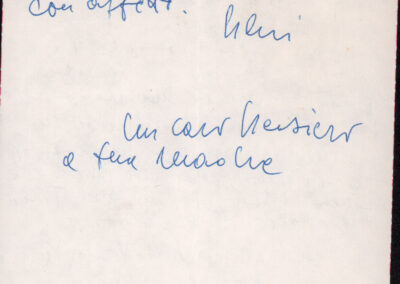 con affetto.
Un caro pensiero
a tua madre